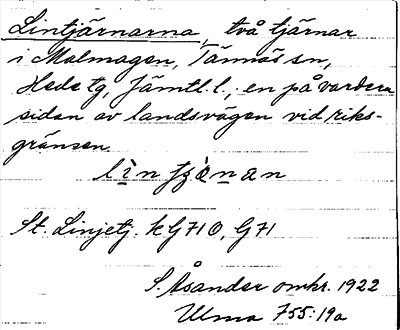 Lintjärnarna, två tjärnar
i Malmagen, Tännäs sn,
Hede tg, Jämtl. l., en på vardera
sidan av landsvägen vid riks-
gränsen.
St. Linjetj. k G 71 O, G 71
S. Åsander omkr. 1922
Ulma 755:19a